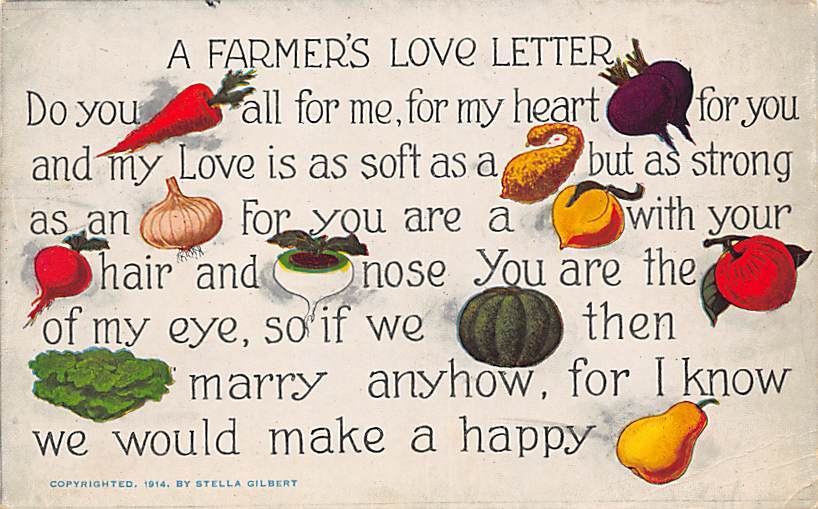 A FARMER'S LOVE LETTER
Do you all for me, for my heart for you
and my Love is as soft as a but as strong
as an For you are a with your
hair and nose You are the
of my eye, so if we then
marry anyhow, for I know
we would make a happy
COPYRIGHTED, 1914, BY STELLA GILBERT